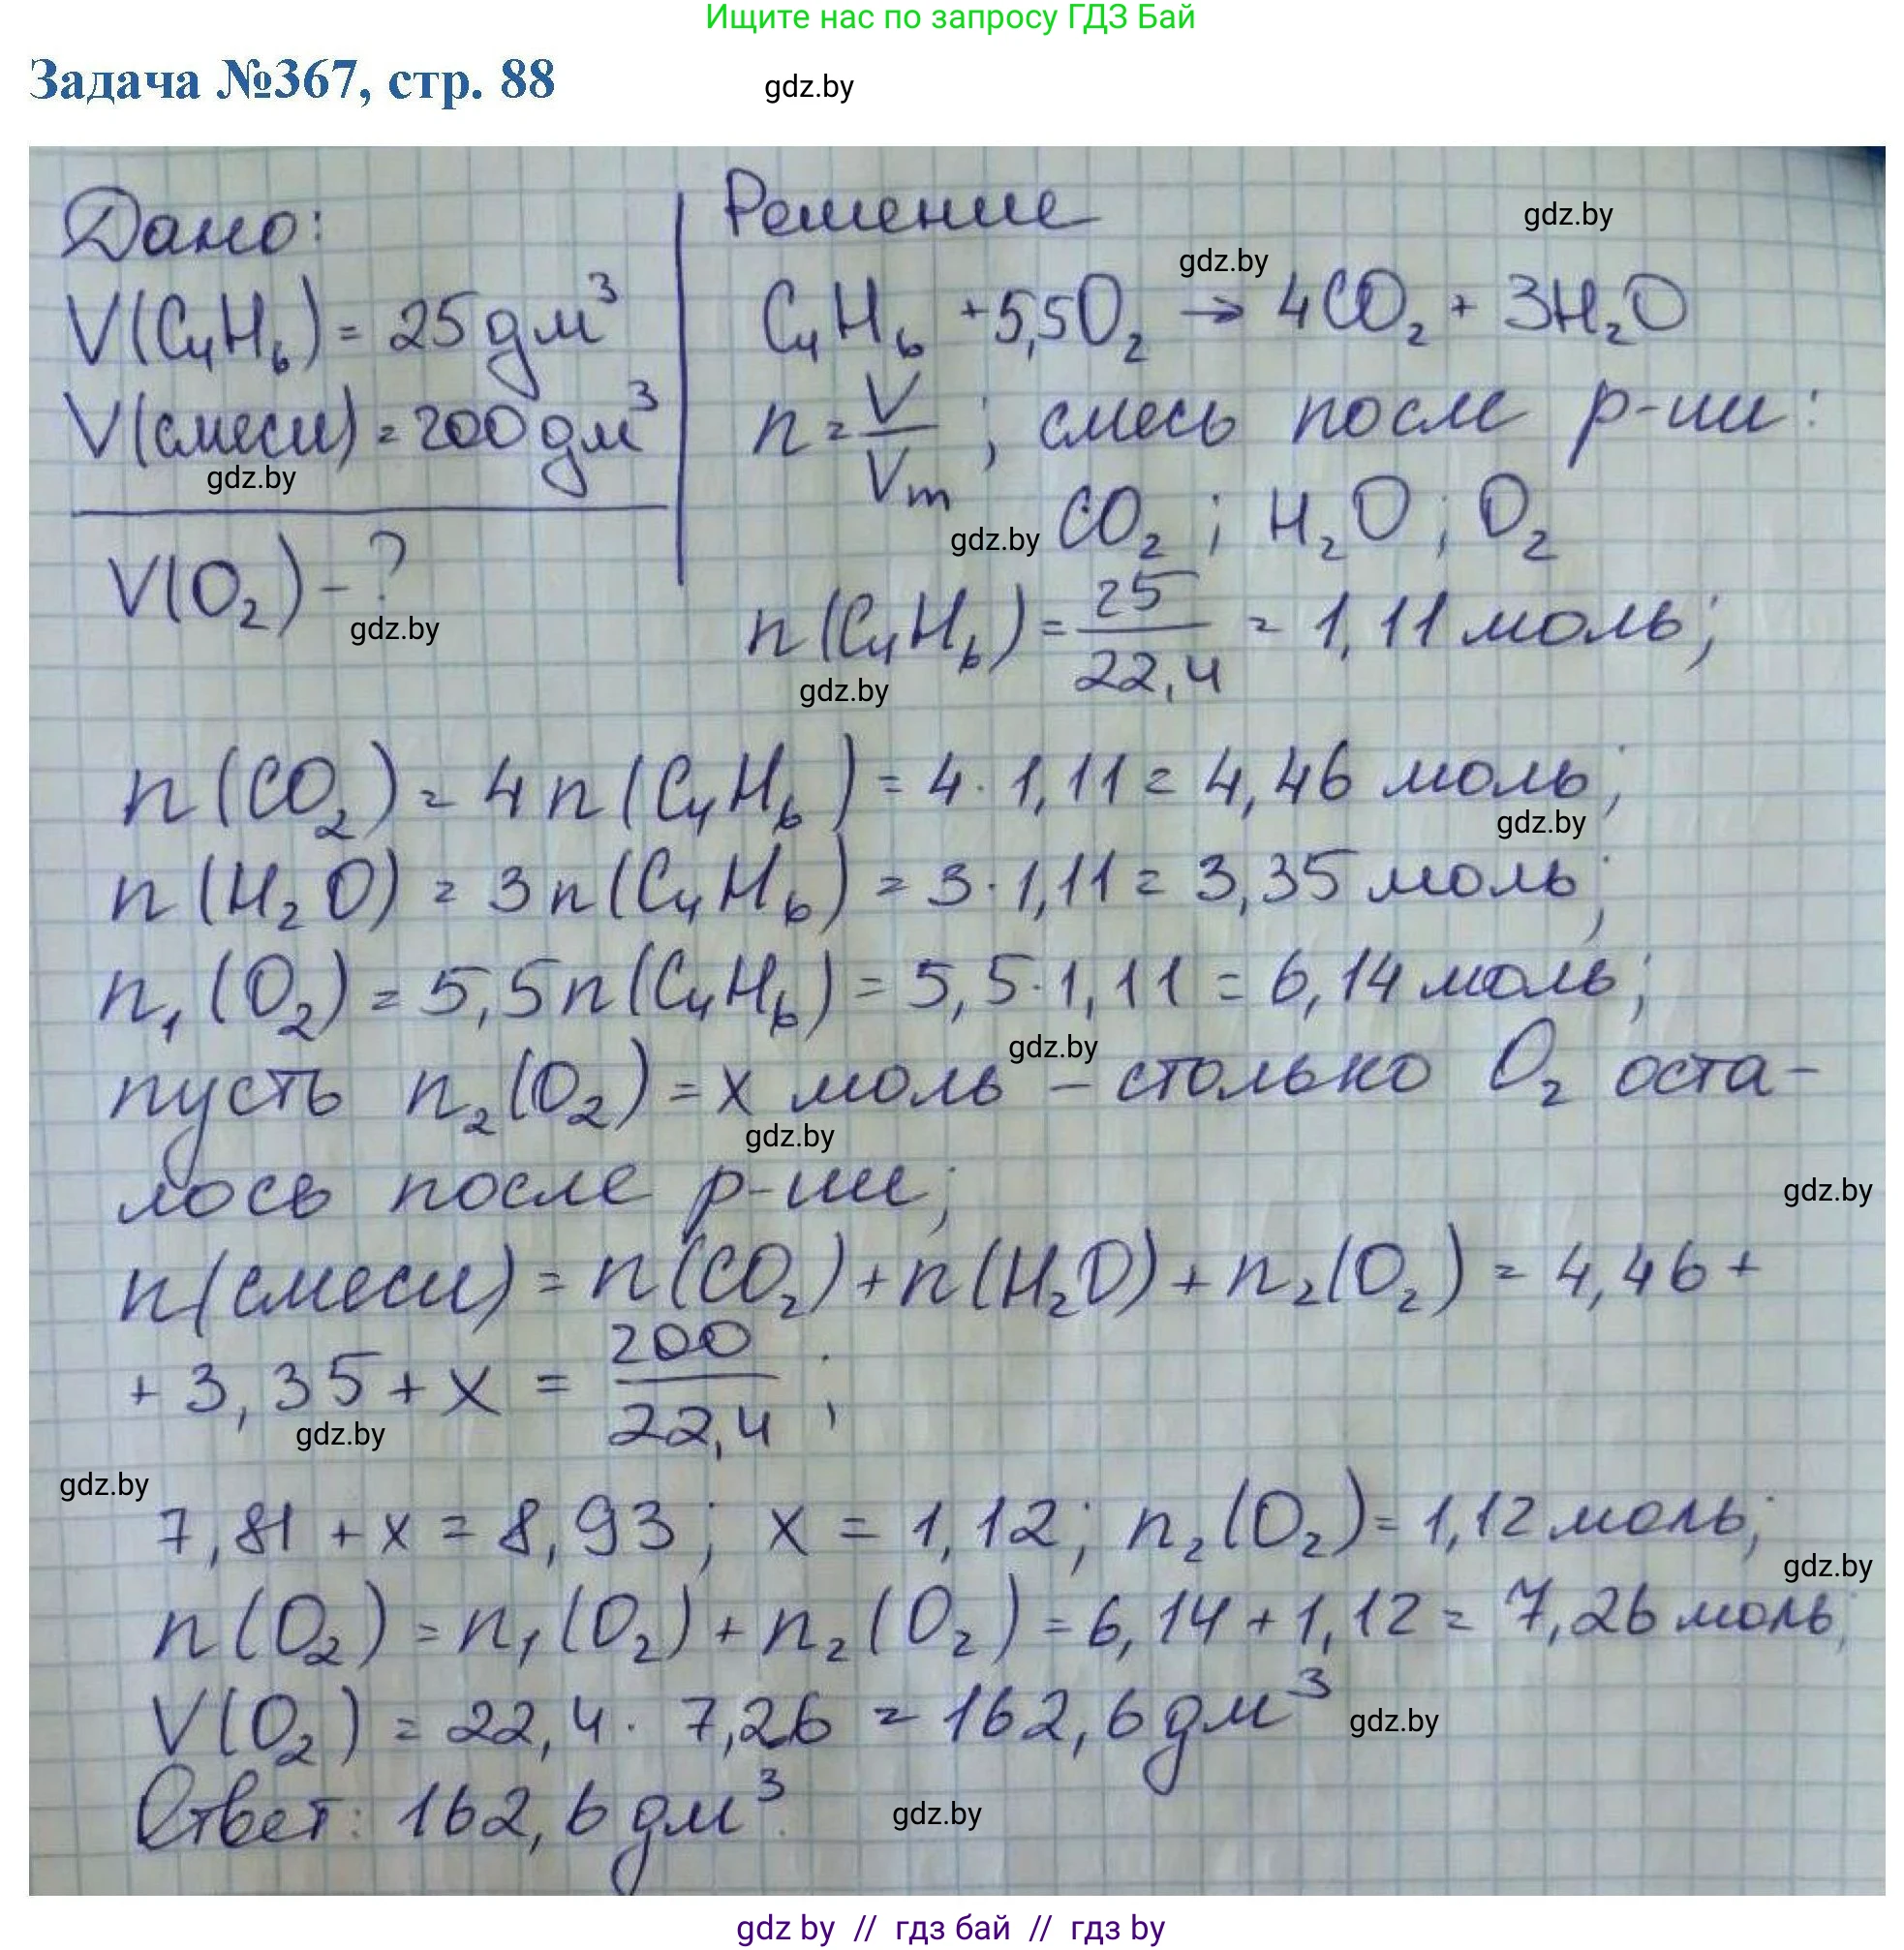 Ищите нас по запросу ГДЗ Бай
Задача №367, стр. 88
gdz.by
Дано:
V(C₄H₆) = 25 дм³
V(смеси) = 200 дм³
gdz.by
V(O₂) - ?
gdz.by
Решение
gdz.by
gdz.by
C₄H₆ + 5,5O₂ → 4CO₂ + 3H₂O
n = V/Vm ; смесь после р-ии:
gdz.by
CO₂ ; H₂O ; O₂
n(C₄H₆) = 25/22,4 = 1,11 моль;
gdz.by
n(CO₂) = 4n(C₄H₆) = 4 · 1,11 = 4,46 моль;
gdz.by
n(H₂O) = 3n(C₄H₆) = 3 · 1,11 = 3,35 моль;
n₁(O₂) = 5,5n(C₄H₆) = 5,5 · 1,11 = 6,14 моль;
gdz.by
пусть n₂(O₂) = x моль – столько O₂ оста-
gdz.by
лось после р-ии;
gdz.by
n(смеси) = n(CO₂) + n(H₂O) + n₂(O₂) = 4,46 +
+ 3,35 + x = 200/22,4 ;
gdz.by
gdz.by
7,81 + x = 8,93; x = 1,12; n₂(O₂) = 1,12 моль;
gdz.by
n(O₂) = n₁(O₂) + n₂(O₂) = 6,14 + 1,12 = 7,26 моль;
V(O₂) = 22,4 · 7,26 = 162,6 дм³
gdz.by
Ответ: 162,6 дм³.
gdz.by
gdz by // гдз бай // гдз by